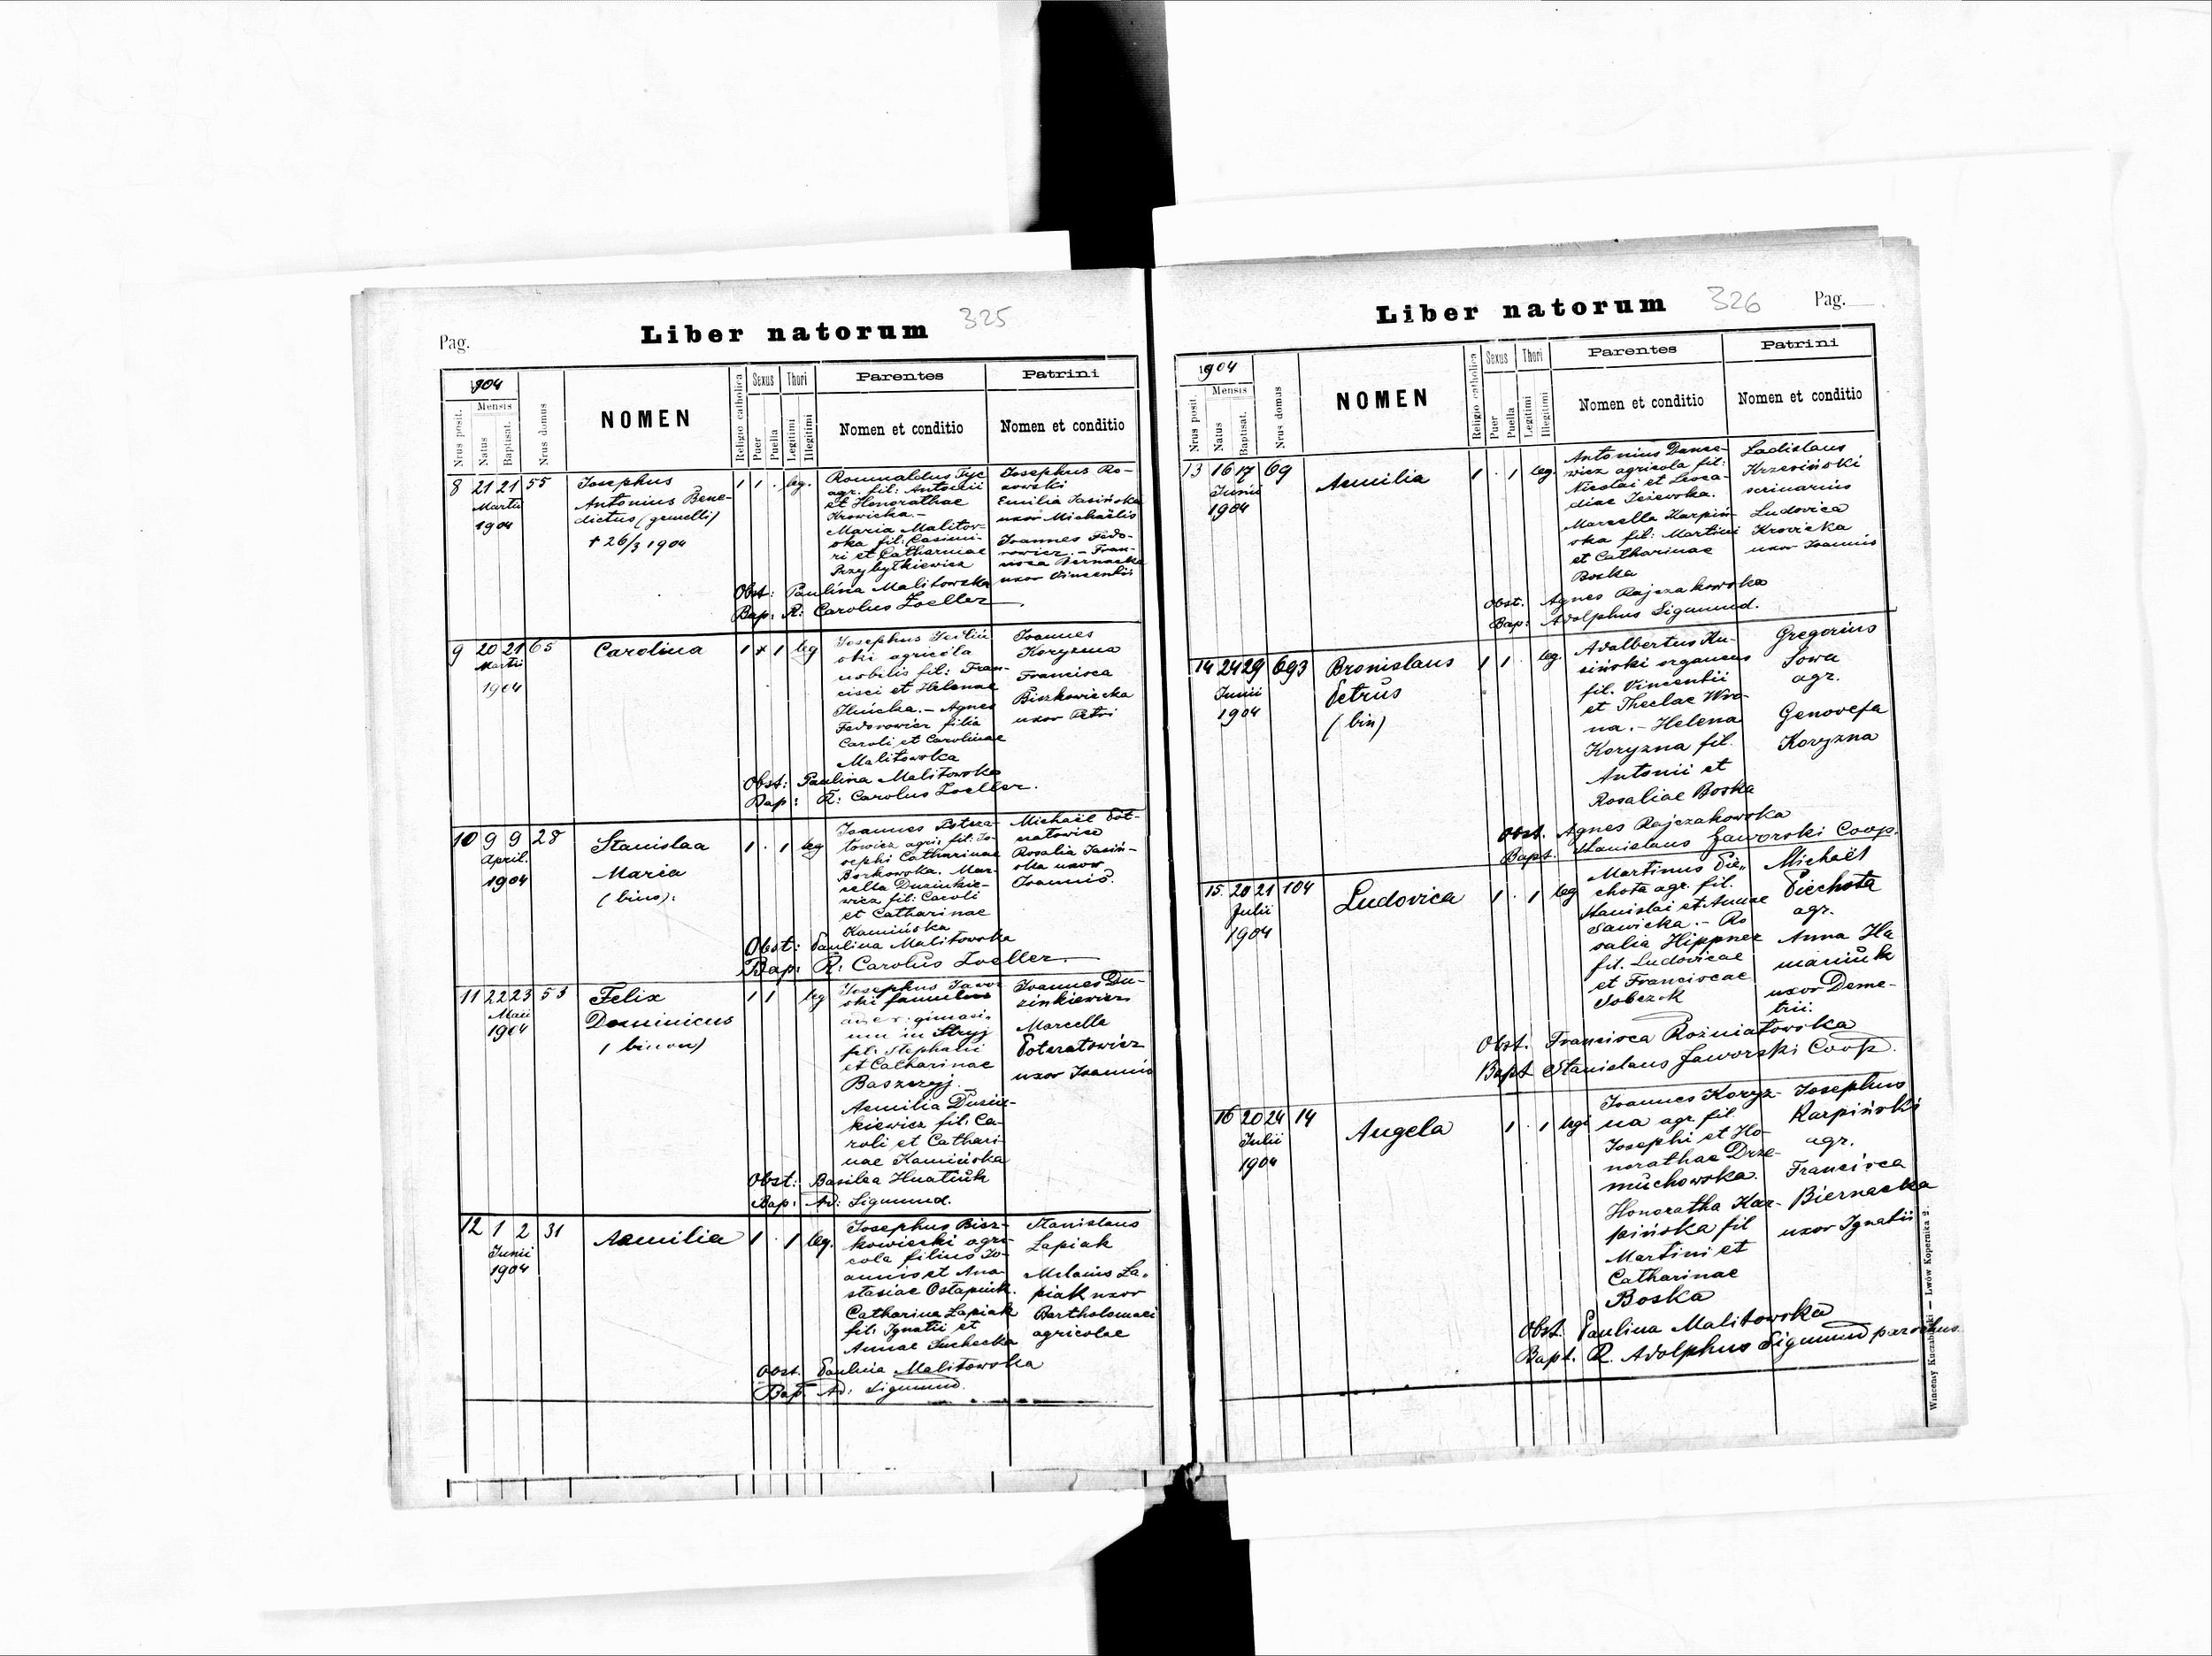 Pag.
Liber natorum
325
1904
Nrus posit.
Mensis
Natus
Baptisat.
Nrus domus
NOMEN
Religio catholica
Sexus
Puer
Puella
Thori
Legitimi
Illegitimi
Parentes
Nomen et conditio
Patrini
Nomen et conditio
8 21 21 55
Martii
1904
Josephus
Antonius Bene-
dictus (gemelli)
† 26/3 1904
1 1 . leg.
Romualdus Tyc
agr. fil: Antonii
et Honorathae
Krowicka.-
Maria Malitow-
ska fil: Casimi-
ri et Catharinae
Przybytkiewicz
Josephus Ro-
kowski
Emilia Jasińska
uxor Michaëlis
Joannes Fedo-
rowicz. - Fran-
cisca Biernacka
uxor Vincentii
Obst: Paulina Malitowska
Bap: R: Carolus Zoeller
9 20 21 65
Martii
1904
Carolina
1 x 1 leg
ski agricola
nobilis fil: Fran-
cisci et Helenae
Ilnicka. - Agnes
Fedorowicz filia
Caroli et Carolinae
Malitowska
Joannes
Koryzna
Francisca
Biszkowiecka
uxor Petri
Obst: Paulina Malitowska
Bap: R: Carolus Zoeller.
10 9 9 28
April.
1904
Stanislaa
Maria
(bino):
1 . 1 leg
Joannes
towicz agri: fil: Jo-
sephi Catharinae
Borkowska. Mar-
cella Duzinkie-
wicz fil: Caroli
et Catharinae
Kamińska
Michaël Pot-
Rosalia Jasiń-
ska uxor
Joannis.
Obst: Paulina Malitowska
Bap: R: Carolus Zoeller.
11 22 23 53
Maii
1904
Felix
Dominicus
(binom)
1 1 leg
Josephus Jawor
ski famulus
gimnasi-
um in Stryj
fil: Stephani
et Catharinae
Baszczyj.
Aemilia Duzin-
kiewicz fil: Ca-
roli et Cathari-
nae Kamińska
Joannes Du-
zinkiewicz
Marcella
Poteratowicz
uxor Joannis
Obst: Basilea Hnatiuk
Bap: Ad: Sigmund.
12 1 2 31
Junii
1904
Aemilia
1 . 1 leg.
Josephus Bisz-
kowiecki agri-
cola filius Jo-
annis et Ana-
stasiae Ostapiuk.
Catharina Łapiak
fil: Ignatii et
Annae Suchecka
Stanislaus
Łapiak
Melania Ła-
piak uxor
Bartholomaei
agricolae
Obst. Paulina Malitowska
Bap. Ad: Sigmund.
Liber natorum
326
Pag.
1904
Nrus posit.
Mensis
Natus
Baptisat.
Nrus domus
NOMEN
Religio catholica
Sexus
Puer
Puella
Thori
Legitimi
Illegitimi
Parentes
Nomen et conditio
Patrini
Nomen et conditio
13 16 17 69
Junii
1904
Aemilia
1 . 1 leg.
Antonius Dance-
wicz agricola fil:
Nicolai et Leoca-
diae Jeżewska.
Marcella Karpiń-
ska fil: Martini
et Catharinae
Boska
Ladislaus
Krzesiński
scriniarius
Ludovica
Krovicka
uxor Joannis
Obst. Agnes Rajczakowska
Bap: Adolphus Sigmund.
14 24 29 693
Junii
1904
Bronislaus
Petrus
(bin)
1 1 . leg.
Adalbertus Ku-
siński organus
fil. Vincentii
et Theclae Wro-
na. - Helena
Koryzna fil.
Antonii et
Rosaliae Boska
Gregorius
Sowa
agr.
Genovefa
Koryzna
Obst. Agnes Rajczakowska
Bapt. Stanislaus Jaworski Coop.
15. 20 21 104
Julii
1904
Ludovica
1 . 1 leg
Martinus Pie-
chota agr. fil.
Stanislai et Annae
Sawicka. - Ro
salia Hippner
fil. Ludovicae
et Franciscae
Sobczak
Michaël
Piechota
agr.
Anna Ha
maniuk
uxor Deme-
trii.
Obst. Francisca Rożniatowska
Bapt Stanislaus Jaworski Coop.
16 20 24 14
Julii
1904
Angela
1 . 1 legi
Joannes Koryz-
na agr fil.
Josephi et Ho-
norathae Drze-
muchowska.
Honoratha Kar-
pińska fil
Martini et
Catharinae
Boska
Josephus
Karpiński
agr.
Francisca
Biernacka
uxor Ignatii
Obst. Paulina Malitowska
Bapt. R. Adolphus Sigmund parochus
Wincenty Kuczabiński — Lwów Kopernika 2.